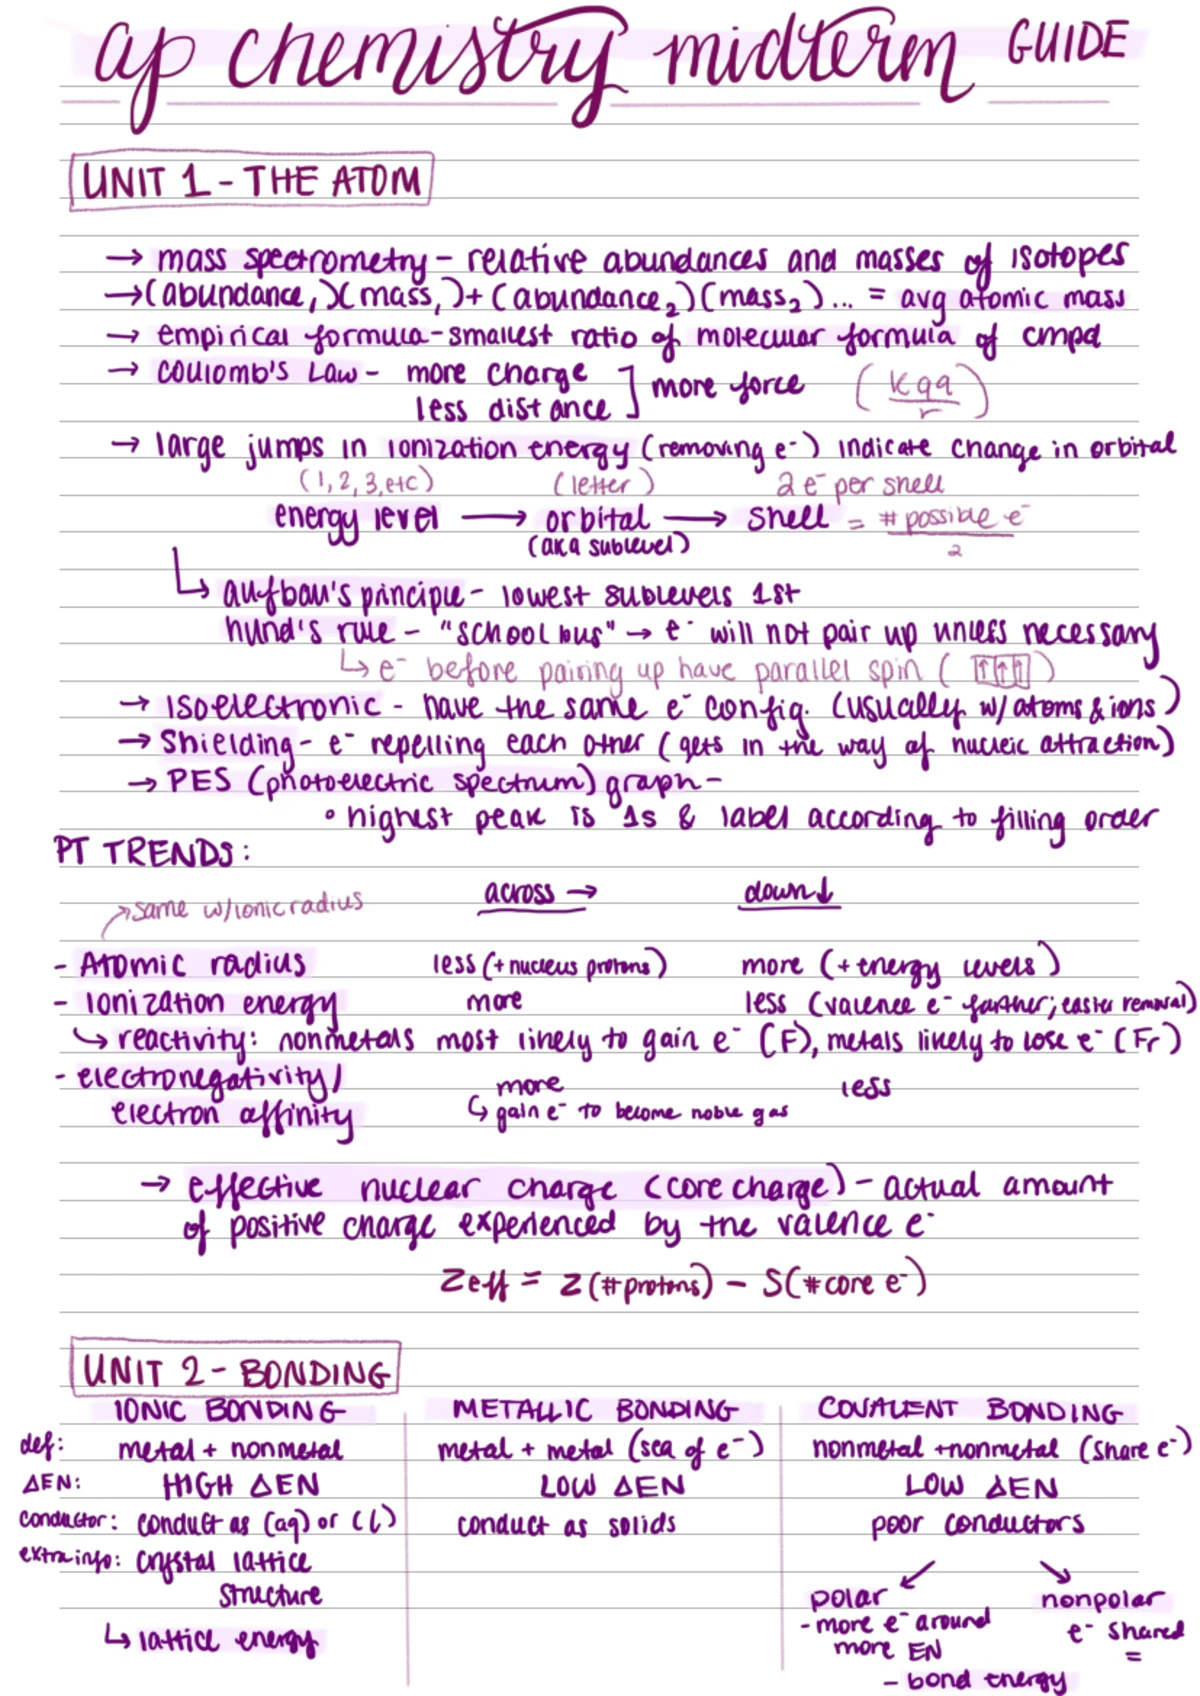 ap chemistry midterm GUIDE
UNIT 1 - THE ATOM
→ mass spectrometry - relative abundances and masses of isotopes
→ (abundance₁)(mass₁) + (abundance₂)(mass₂)... = avg atomic mass
→ empirical formula - smallest ratio of molecular formula of cmpd
→ coulomb's Law - more charge
less distance ] more force ( kqq / r )
→ large jumps in ionization energy (removing e⁻) indicate change in orbital
(1, 2, 3, etc) (letter) 2 e⁻ per shell
energy level → orbital → shell = # possible e⁻ / 2
(aka sublevel)
↳ aufbau's principle - lowest sublevels 1st
hund's rule - "school bus" → e⁻ will not pair up unless necessary
↳ e⁻ before pairing up have parallel spin ( ↑ ↑ ↑ )
→ Isoelectronic - have the same e⁻ config. (usually w/ atoms & ions)
→ Shielding - e⁻ repelling each other (gets in the way of nucleic attraction)
→ PES (photoelectric spectrum) graph -
• highest peak is 1s & label according to filling order
PT TRENDS:
across → down ↓
→ same w/ ionic radius
- Atomic radius less (+ nucleus protons) more (+ energy levels)
- Ionization energy more less (valence e⁻ farther; easier removal)
↳ reactivity: nonmetals most likely to gain e⁻ (F), metals likely to lose e⁻ (Fr)
- electronegativity/ more less
electron affinity ↳ gain e⁻ to become noble gas
→ effective nuclear charge (core charge) - actual amount
of positive charge experienced by the valence e⁻
Zeff = Z (# protons) - S (# core e⁻)
UNIT 2 - BONDING
IONIC BONDING METALLIC BONDING COVALENT BONDING
def: metal + nonmetal metal + metal (sea of e⁻) nonmetal + nonmetal (share e⁻)
ΔEN: HIGH ΔEN LOW ΔEN LOW ΔEN
conductor: conduct as (aq) or (l) conduct as solids poor conductors
extra info: crystal lattice
structure
↳ lattice energy
polar nonpolar
- more e⁻ around e⁻ shared
more EN =
- bond energy